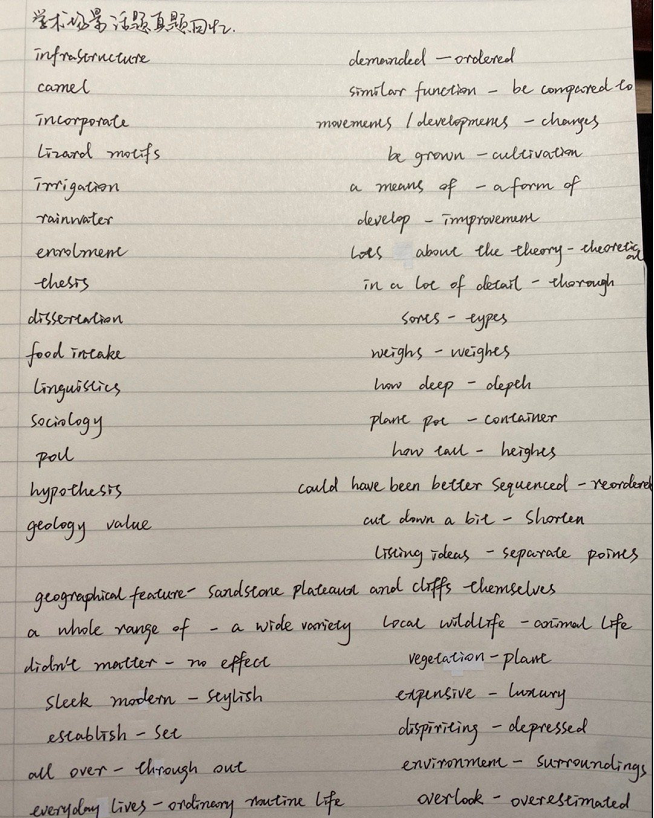 学术场景话题真题回忆.
infrastructure demanded — ordered
camel similar function - be compared to
incorporate movements / developments - changes
lizard motifs be grown - cultivation
irrigation a means of - a form of
rainwater develop - improvement
enrolment lots about the theory - theoretical
thesis in a lot of detail - thorough
dissertation sorts - types
food intake weighs - weights
linguistics how deep - depth
sociology plant pot - container
poll how tall - heights
hypothesis could have been better sequenced - reordered
geology value cut down a bit - shorten
listing ideas - separate points
geographical feature - sandstone plateaus and cliffs themselves
a whole range of - a wide variety local wildlife - animal life
didn't matter - no effect vegetation - plant
sleek modern - stylish expensive - luxury
establish - set dispiriting - depressed
all over - through out environment - surroundings
everyday lives - ordinary routine life overlook - overestimated